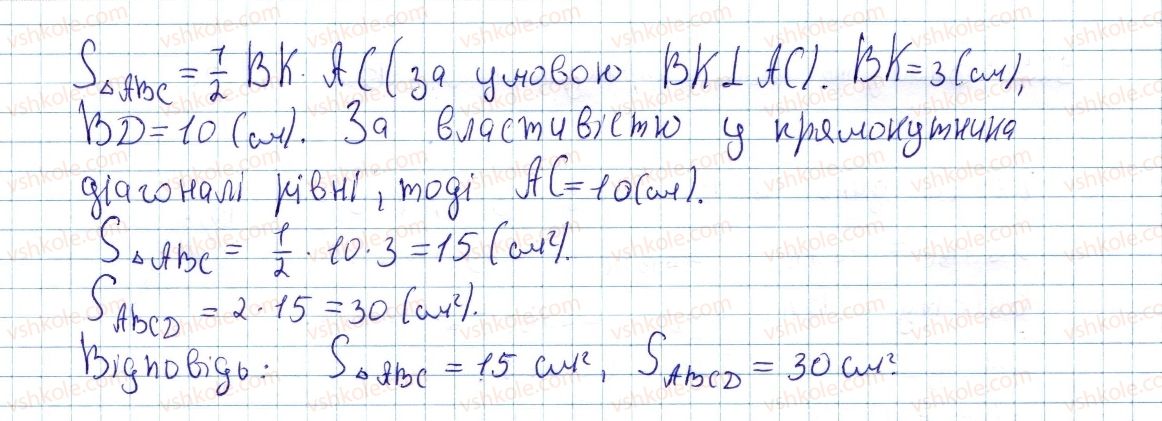 S△ABC = 1/2 BK · AC (за умовою BK ⊥ AC). BK = 3 (см),
BD = 10 (см). За властивістю у прямокутника
діагоналі рівні, тоді AC = 10 (см).
S△ABC = 1/2 · 10 · 3 = 15 (см²).
SABCD = 2 · 15 = 30 (см²).
Відповідь: S△ABC = 15 см², SABCD = 30 см².
vshkole.com